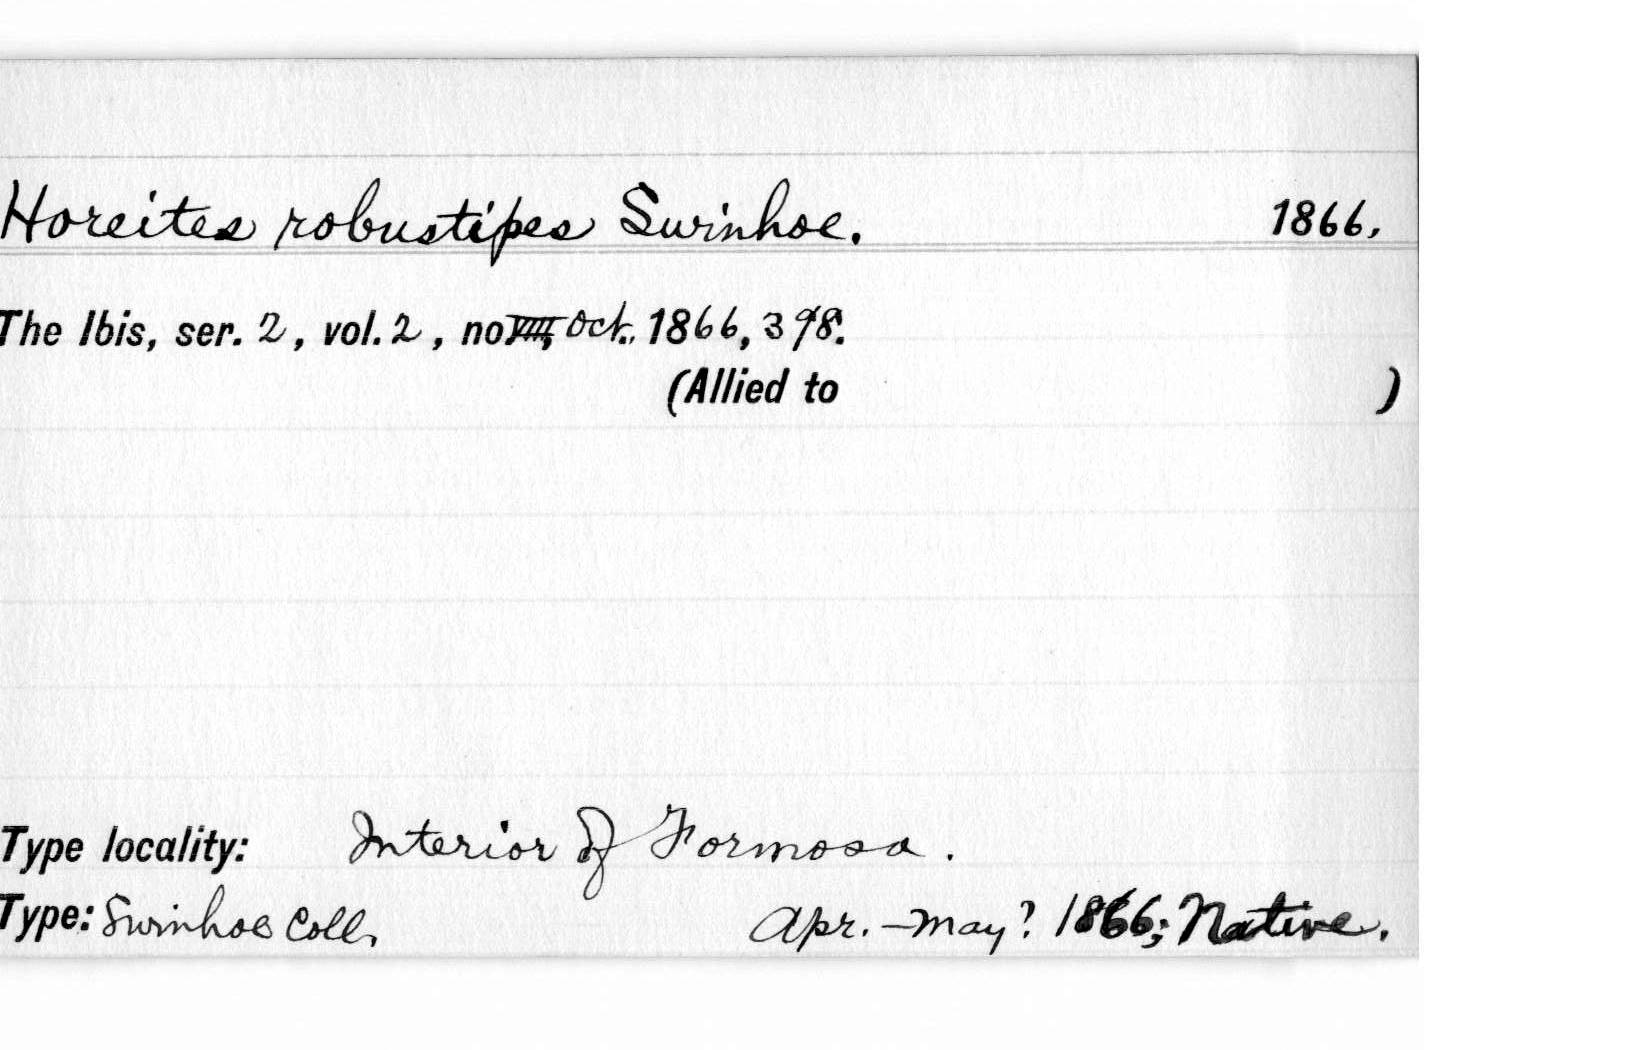 Horeites robustipes Swinhoe. 1866,
The Ibis, ser. 2, vol. 2, no. VIII, Oct. 1866, 398.
(Allied to )
Type locality: Interior of Formosa.
Type: Swinhoe Coll. Apr.-May? 1866; Native.